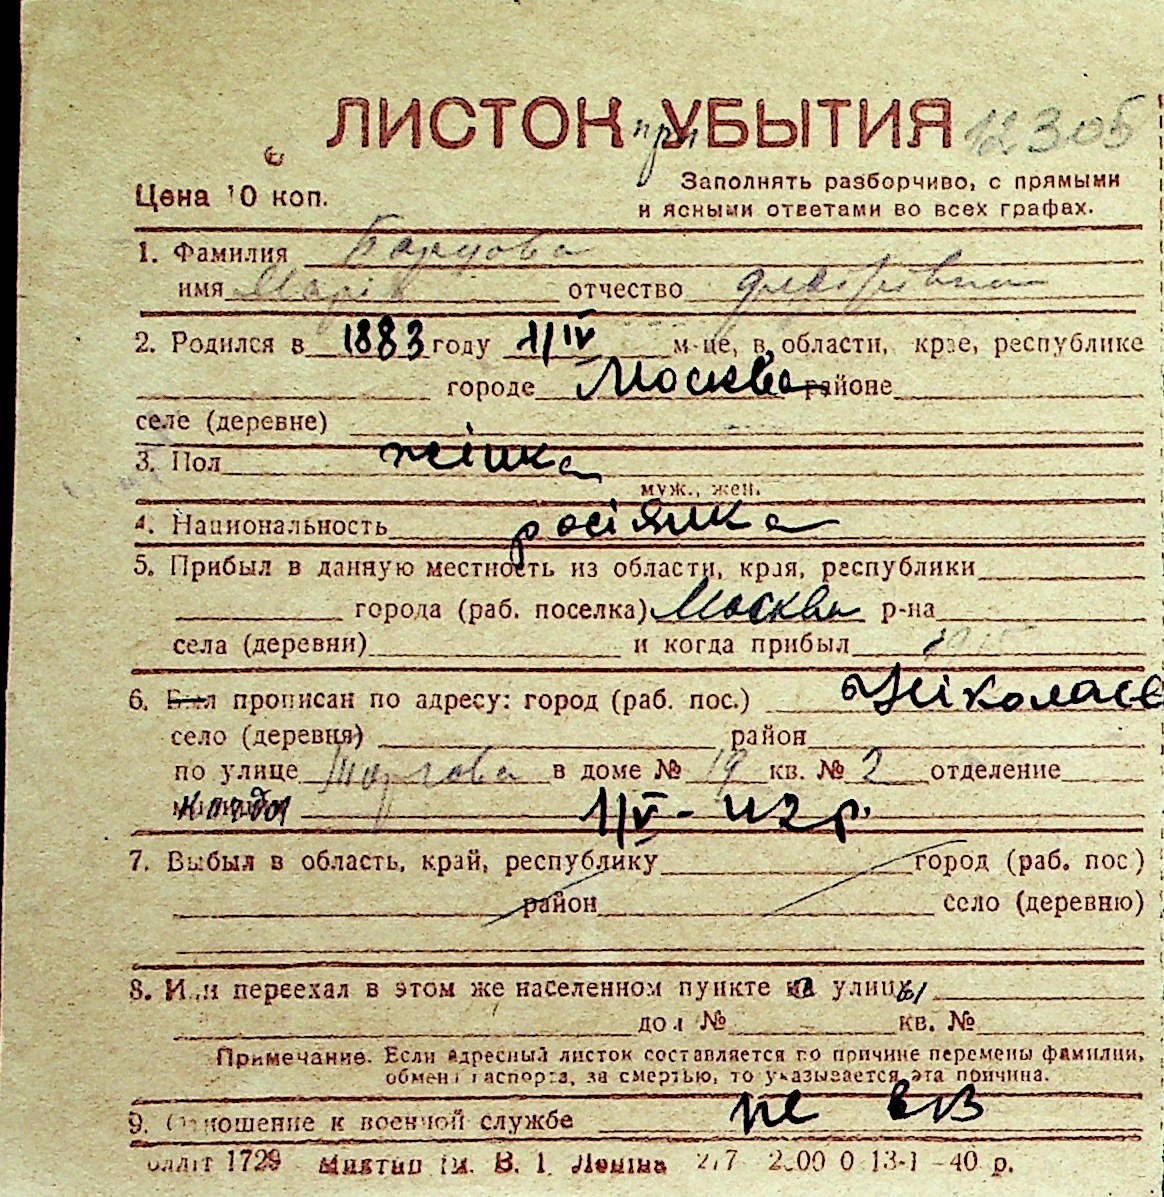 ЛИСТОК при УБЫТИЯ 12305
Цена 10 коп.
Заполнять разборчиво, с прямыми
и ясными ответами во всех графах.
1. Фамилия
имя Марія отчество
2. Родился в 1883 году 1/IV м-це, в области, крае, республике
городе Москва районе
селе (деревне)
3. Пол жінка
муж., жен.
4. Национальность росіянка
5. Прибыл в данную местность из области, края, республики
города (раб. поселка) Москви р-на
села (деревни) и когда прибыл 1915
6. Был прописан по адресу: город (раб. пос.) Ніколаєв
село (деревня) район
по улице в доме № 19 кв. № 2 отделение
когда 1/V - 42 р.
7. Выбыл в область, край, республику город (раб. пос)
район село (деревню)
8. Или переехал в этом же населенном пункте из улицы
дом № кв. №
Примечание. Если адресный листок составляется по причине перемены фамилии,
обмена паспорта, за смертью, то указывается эта причина.
9. Отношение к военной службе не в/в
1729 им. В. І. Леніна 13-1 -40 р.